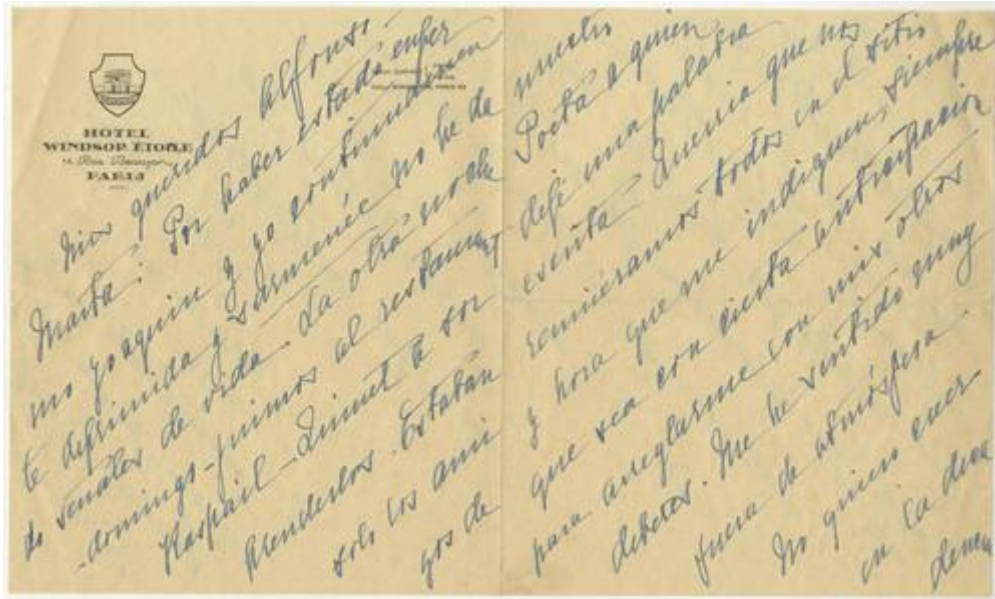 HOTEL
WINDSOR ÉTOILE
14, Rue Beaujon
PARIS
Mis queridos Alfonso
Marta: Por haber estado enfer
mo Joaquin y yo continuamen
te deprimida y no he da
do señales de vida. La otra noche
-domingo- fuimos al restaurant
Raspail
prenderlos. Estaban
solo los ami
gos de
nuestro
Poeta a quien
dejé una palabra
escrita. Querria que nos
reunieramos todos en el sitio
y hora que me indiquen, siempre
que sea con cierta anticipacion
para arreglarme con mis otros
deberes. Me he sentido muy
fuera de atmósfera.
No quiero creer
en la